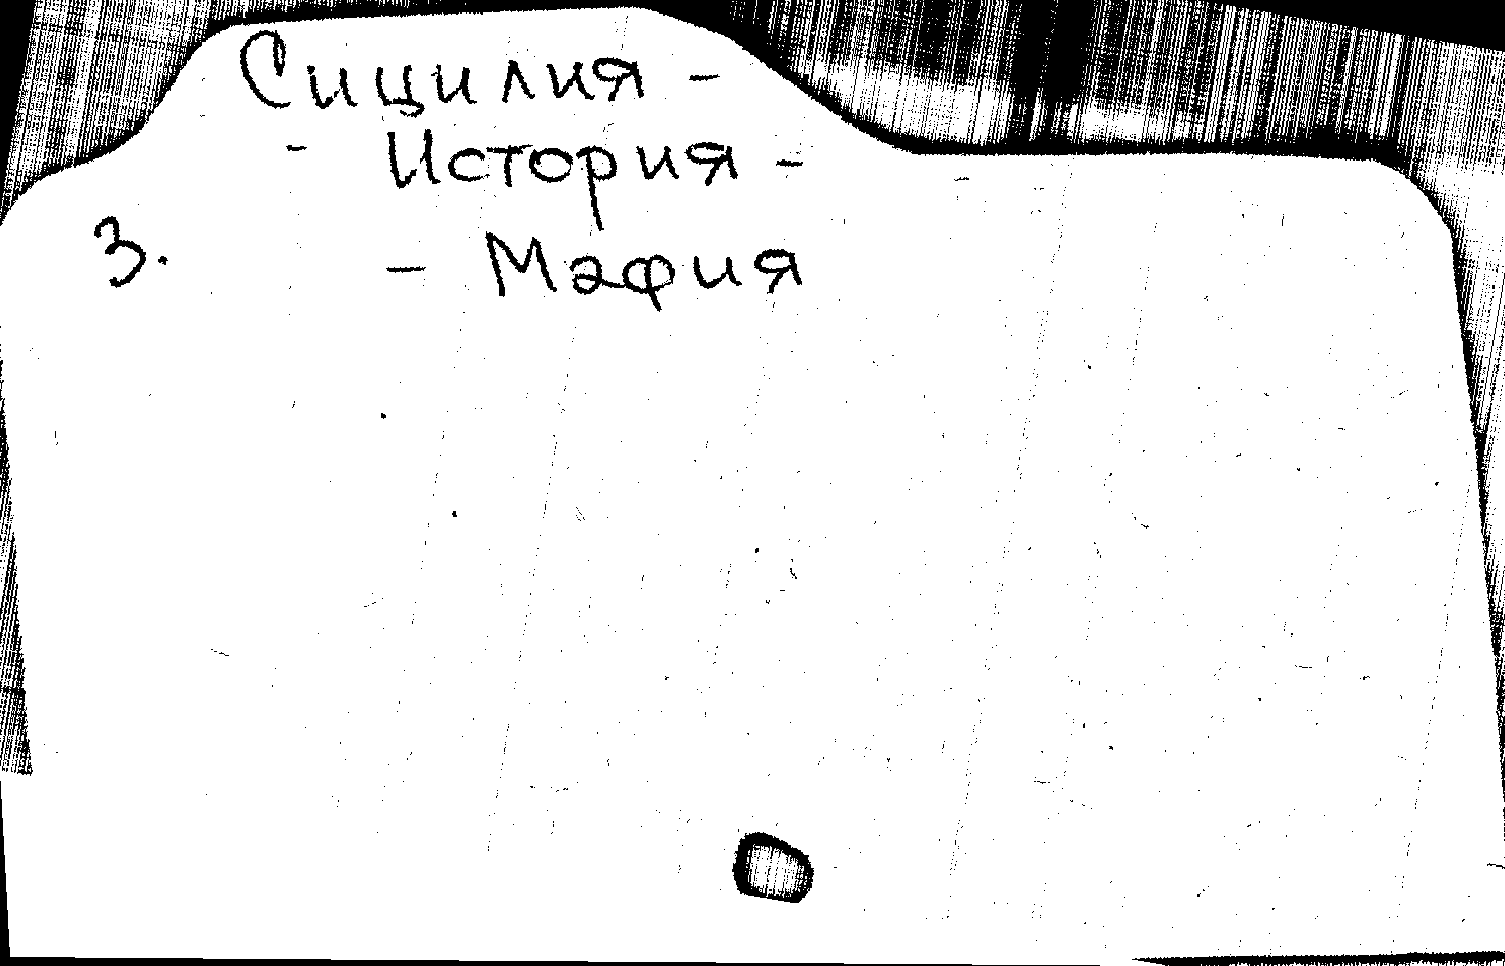 Сицилия -
- История -
3. - Мафия